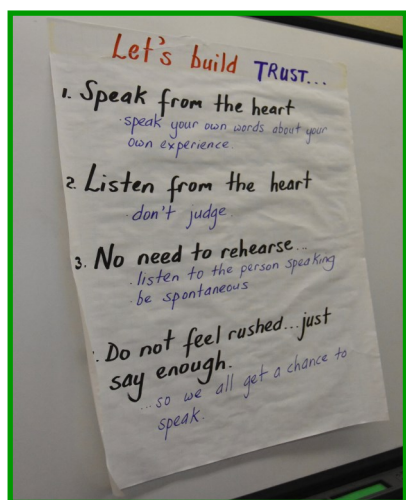 Let's build TRUST...
1. Speak from the heart
·speak your own words about your
own experience.
2. Listen from the heart
·don't judge
3. No need to rehearse...
·listen to the person speaking
·be spontaneous
. Do not feel rushed...just
say enough.
...so we all get a chance to
speak.